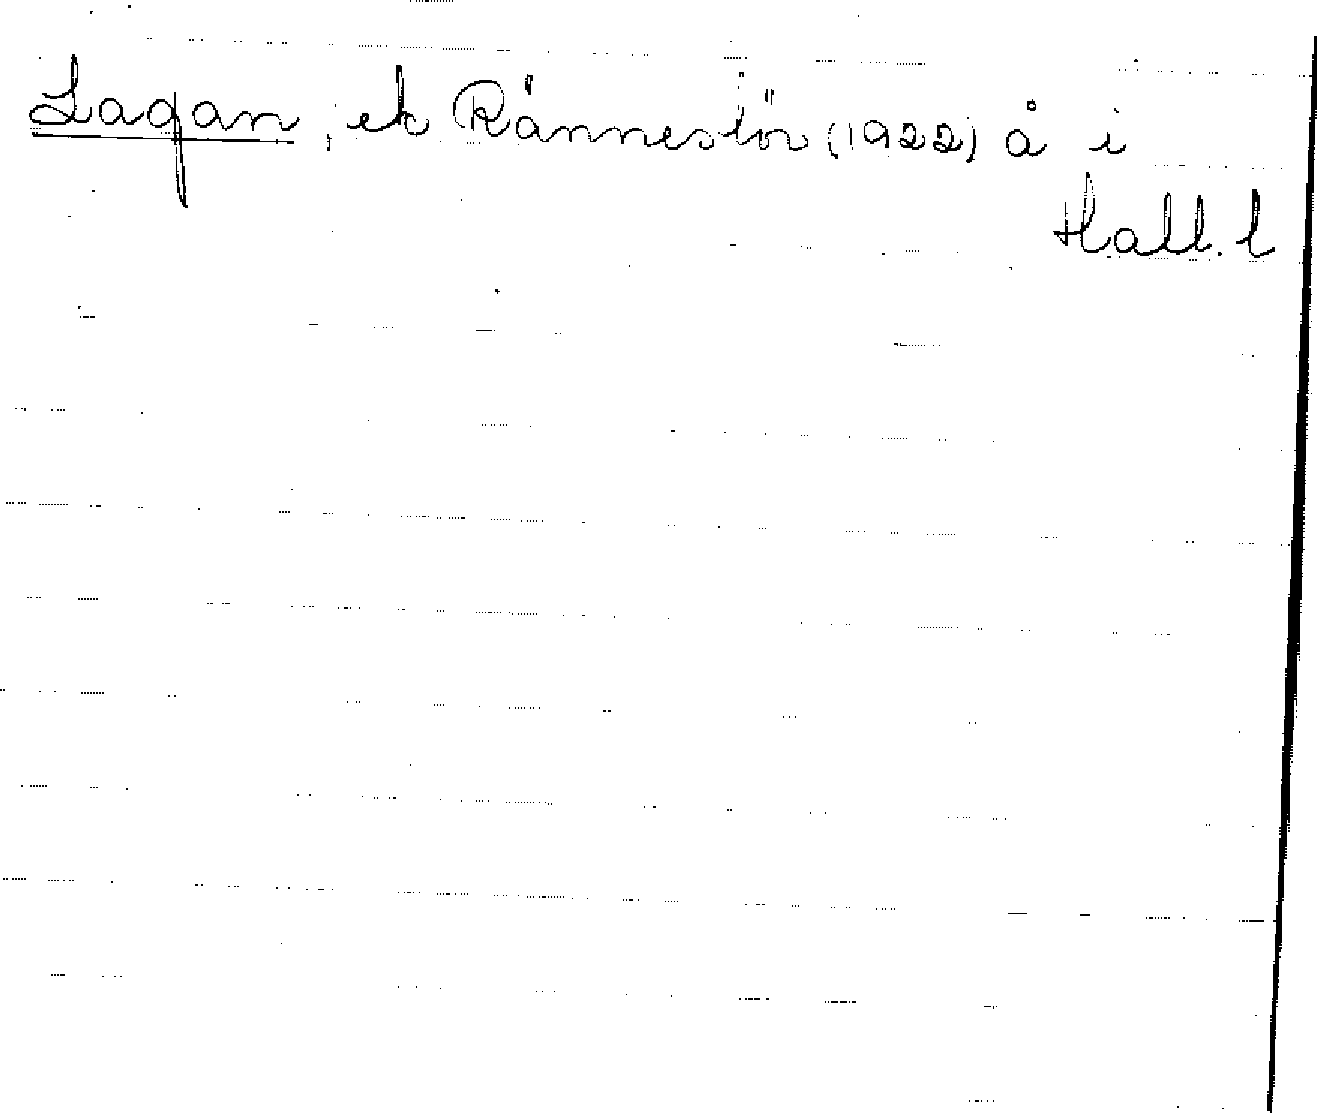 Lagan, ek Ränneslöv (1922) å i
Hall. l